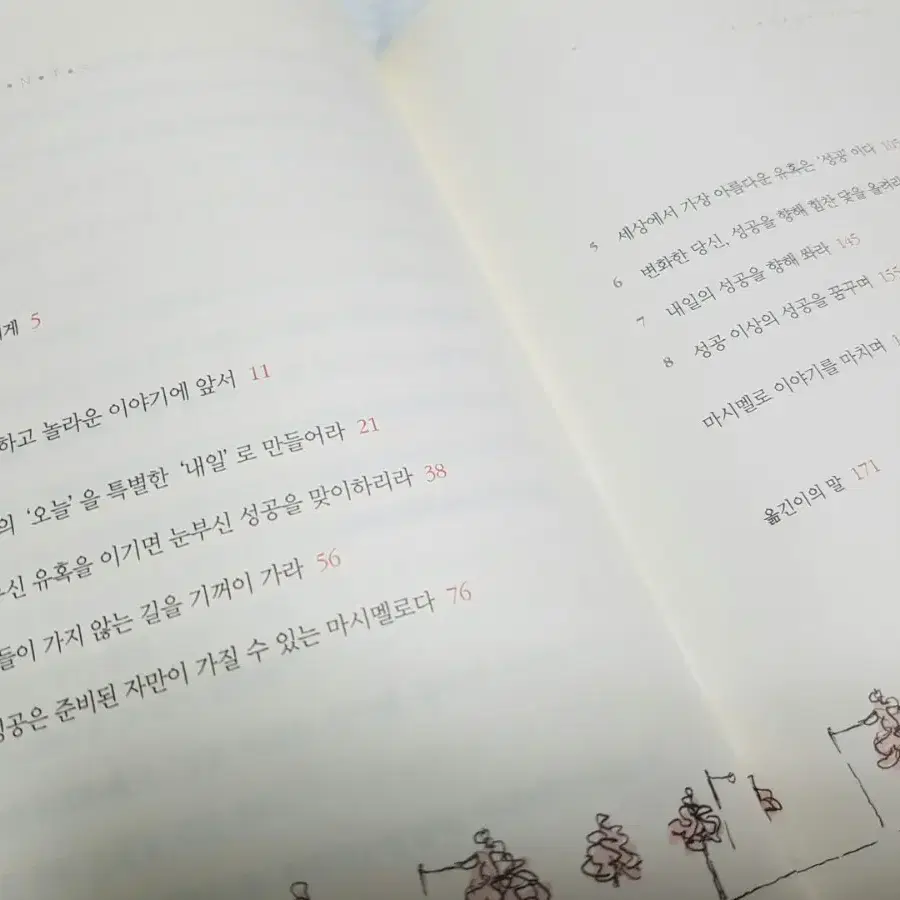 N • T •
에게 5
하고 놀라운 이야기에 앞서 11
의 ‘오늘’을 특별한 ‘내일’로 만들어라 21
신 유혹을 이기면 눈부신 성공을 맞이하리라 38
들이 가지 않는 길을 기꺼이 가라 56
성공은 준비된 자만이 가질 수 있는 마시멜로다 76
5 세상에서 가장 아름다운 유혹은 ‘성공’이다 105
6 변화한 당신, 성공을 향해 힘찬 닻을 올려라
7 내일의 성공을 향해 쏴라 145
8 성공 이상의 성공을 꿈꾸며 155
마시멜로 이야기를 마치며
옮긴이의 말 171